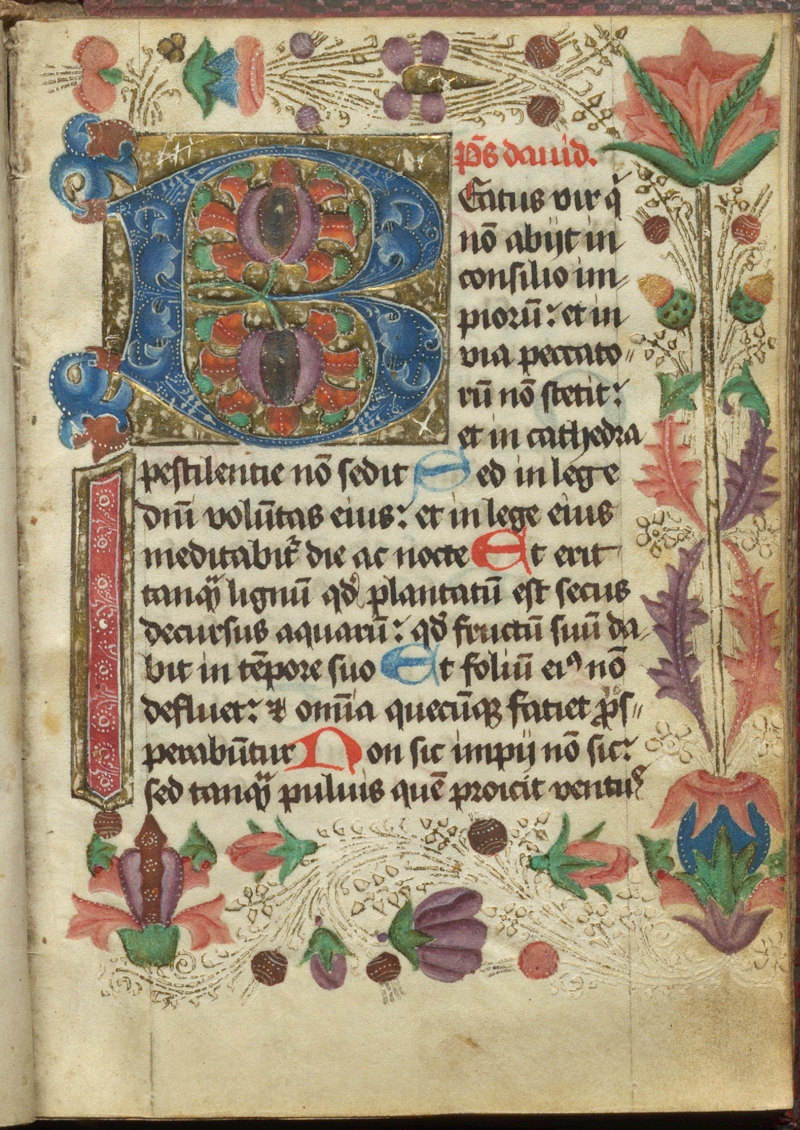 p̄s dauid.
BEatus vir q̇
nō abijt in
consilio im-
piorū: et in
via peccato=
rū nō stetit:
et in cathedra
pestilentie nō sedit Sed in lege
dn̄i volūtas eius: et in lege eius
meditabit᷑ die ac nocte Et erit
tanqȝ lignū qđ plantatū est secus
decursus aquarū: qđ fructū suū da-
bit in tēpore suo Et foliū eiꝰ nō
defluet: ⁊ om̄ia quecūqȝ faciet p̄s=
perabūtur Non sic impij nō sic:
sed tanqȝ puluis quē proicit ventus